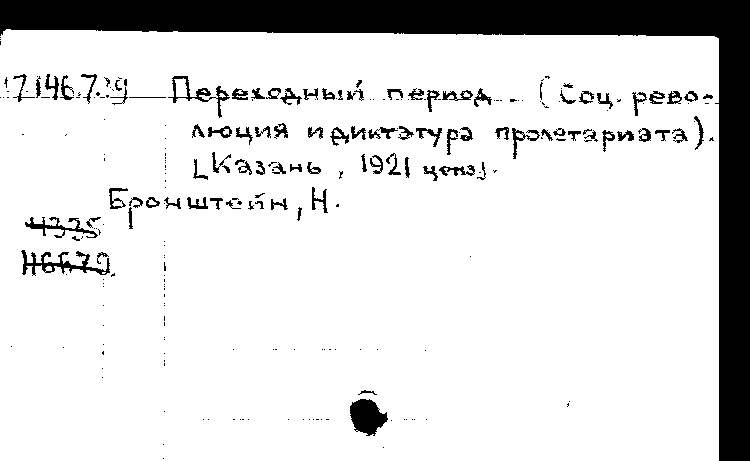 17146.7.39 Переходный период. (Соц. рево-
люция и диктатура пролетариата).
[Казань, 1921
Бронштейн, Н.
4335
Н6679.